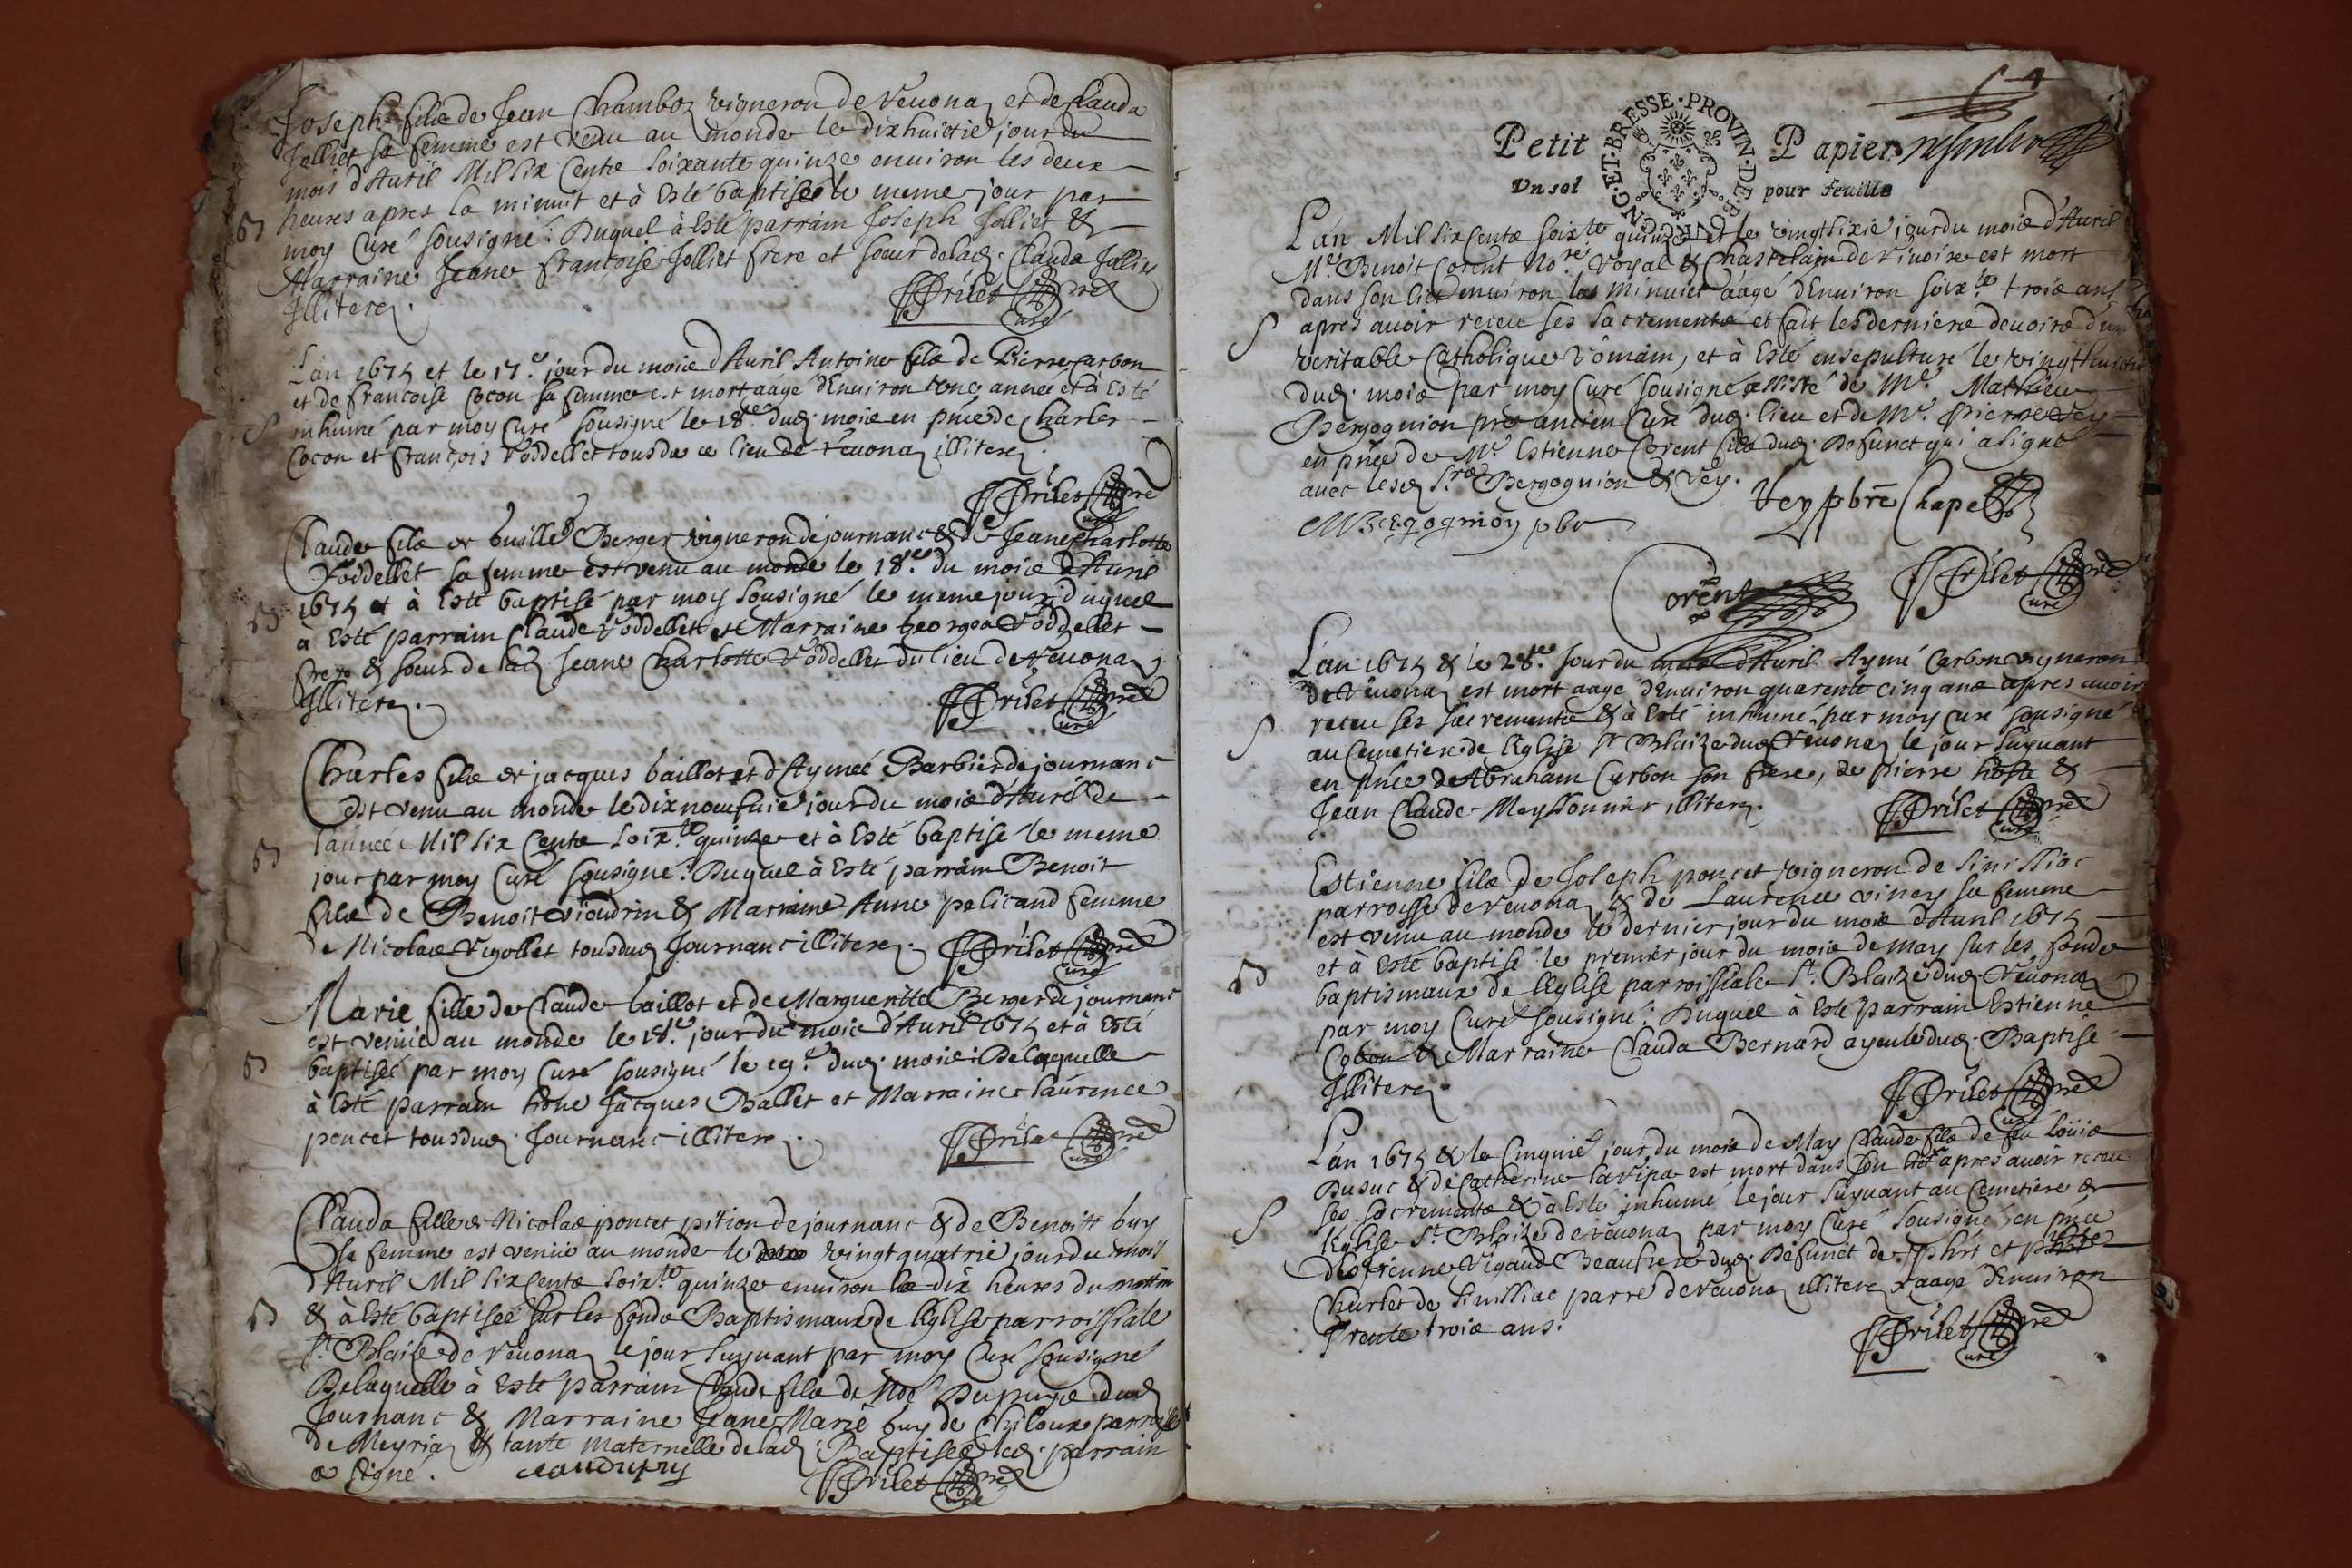 Joseph fils de Jean Chamboz vigneron de Veuonas et de Clauda
Jolliet sa femme est venu au monde le dixhuictie jour du
mois d'Auril Mil six Cents soixante quinze enuiron les deux
heures apres la minuit et à Esté baptisé le meme jour par
B moy Curé sousigné: Duquel à Esté parrain Joseph Jolliet &
Marraine Jeane Francoise Jolliet frere et soeur de lad. Clauda Jolliet
Illiteres.
Prilet pre Curé
L'an 1675 et le 17.e jour du mois d'Auril Antoine fils de Pierre Carbon
et de Francoise Cocon sa femme est mort aagé d'Enuiron annee et à Esté
S inhumé par moy Curé sousigné le 18.e dud. mois en pnce de Charles
Cocon et François Voddellet tous de ce lieu de Veuonas illiteres.
Prilet pre Curé
Claude fils de Guille Berger vigneron de journanc & de Jeane Charlotte
Voddellet sa femme est venu au monde le 18.e du mois d'Auril
B 1675 et à Esté baptisé par moy sousigné le meme jour: duquel
à Esté parrain Claude Voddellet et Marraine Georgea Voddellet
frere & soeur de lad. Jeane Charlotte Voddellet du lieu de Veuonas
Illiteres.
Prilet pre Curé
Charles fils de jacques baillot et d'Aymeé Barbier de journanc
est venu au monde le dixneufuie jour du mois d'Auril de
B l'année Mil six Cents soix.te quinze et à Esté baptisé le meme
jour par moy Curé sousigné: Duquel à Esté parrain Benoit
fils de Benoit & Marraine Anne pelicand femme
de Nicolas Vigollet tous dud. Journanc illiteres.
Prilet pre Curé
Marie fille de Claude baillot et de Margueritte Berger de journanc
est venüe au monde le 18.e jour du mois d'Auril 1675 et à Esté
B baptiseé par moy Curé sousigné le 19.e dud. mois: De laquelle
à Esté parrain hone Jacques Ballet et Marraine laurence
poncet tous dud. Journanc illiteres.
Prilet pre Curé
Clauda fille de Nicolas poncet pition de journanc & de Benoitt buy
sa femme est venüe au monde le vingt quatrie jour du mois
d'Auril Mil six Cents soix.te quinze enuiron les dix heures du mattin
B & à Esté baptiseé sur les fonds Baptismaux de l'Eglise parroissiale
St. Blaise de Veuonas le jour suyuant par moy Curé sousigné
De laquelle à Esté parrain Claude fils de Noé Dupuys dud.
Journanc & Marraine Jeane Marie buy de Chiloux parroisse
de Meyrias & tante maternelle de lad. Baptiseé led. parrain
a signé.
Prilet pre Curé
4
Petit Papier
Vn sol pour feuille
BOVRGONG·ET·BRESSE·PROVIN·DE
L'an Mil six Cents soix.te quinze et le vingtsixie jour du mois d'Auril
M.e Benoit Corent No.re Royal & Chastelain de Vinoise est mort
dans son lict enuiron les minuict aagé d'Enuiron soix.te trois ans
S apres auoir receu ses sacrements et fait les derniers deuoirs d'un
veritable Catholique Romain, et à Esté ensepulturé le vingthuictie
dud. mois par moy Curé sousigné assisté de M.e Matthieu
Bergognion pre ancien Curé dud. lieu et de M.e Pierre Vey
en pnce de M.e Estienne Corent fils dud. Defunct qui a signé
auec lesd. S.rs Bergognion & Vey.
MBergognion pbr
Vey pbre Chape
Corent
Prilet pre Curé
L'an 1675 & le 28.e Jour du mois d'Auril Aymé Carbon vigneron
de Veuonas est mort aagé d'Enuiron quarente cinq ans apres auoir
receu ses sacrements & à Esté inhumé par moy Curé sousigné
S au Cemetiere de l'Eglise St Blaize dud. Veuonas le jour suyuant
en pnce de Abraham Carbon son frere, de pierre hoste &
Jean Claude Meyssonnier illiteres.
Prilet pre Curé
Estienne fils de Joseph poncet vigneron de Simissiac
parroisse de Veuonas & de Laurence viney sa femme
est venu au monde le dernier jour du mois d'Auril 1675
et à Esté baptisé le premier jour du mois de may sur les fonds
B baptismaux de l'Eglise parroissiale St. Blaize dud. Veuonas
par moy Curé sousigné: Duquel à Esté parrain Estienne
Cocon & Marraine Clauda Bernard ayeule dud. Baptisé
Illiteres.
Prilet pre Curé
L'an 1675 & le Cinquie jour du mois de May Claude fils de feu Loüis
Dusuc & de Catherine laVipa est mort dans son lict apres auoir receu
ses sacrements & à Esté inhumé le jour suyuant au Cemetiere de
S l'Eglise St. Blaize de Veuonas par moy Curé sousigné, en pnce
d'Estienne Vigaud Beaufrere dud. Defunct de et
Charlet de Simissiac parre de Veuonas illiteres & aagé d'Enuiron
Trente trois ans.
Prilet pre Curé